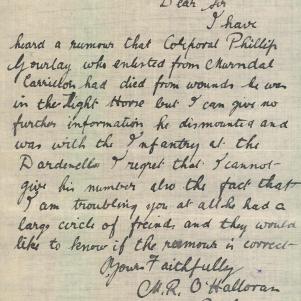 Dear Sir
I have
heard a rumour that Corporal Phillip
Gourlay who enlisted from Murndal
Carrillon had died from wounds he was
in the Light Horse but I can give no
further information he dismounted and
was with the Infantry at the
Dardenells I regret that I cannot
give his number also the fact that
I am troubling you at all he had a
large circle of freinds and they would
like to know if the rumour is correct
Yours Faithfully
M.R. O'Halloran